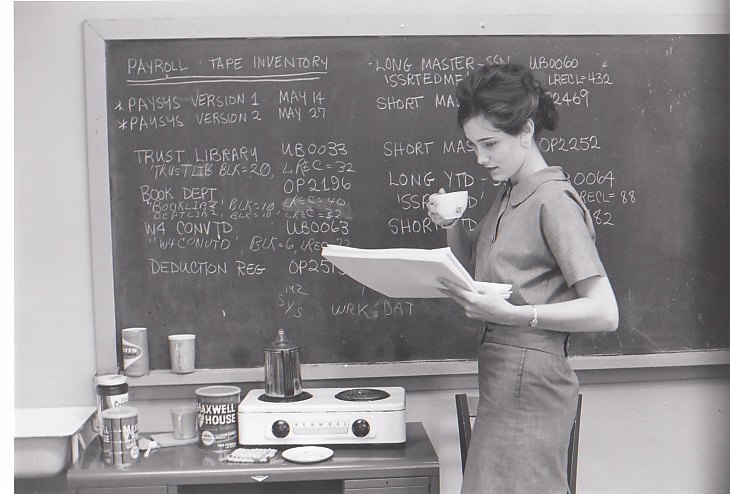 PAYROLL TAPE INVENTORY
*PAYSYS VERSION 1 MAY 14
*PAYSYS VERSION 2 MAY 27
TRUST LIBRARY UB0033
'TRUSTLIB BLK=20, LREC=32
BOOK DEPT OP2196
"BOOKLIB2" BLK=10, LREC=40.
BLK=10, LREC=32
W4 CONVTD UB0063
"W4CONVTD', BLK=6,
DEDUCTION REG
192
SYS WRK DAT
-LONG MASTER-SSN UB0060
LRECL=432
SHORT 2469
SHORT OP2252
LONG YTD 0064
RECL=88
SHORT 82
MAXWELL
HOUSE
KENMORE